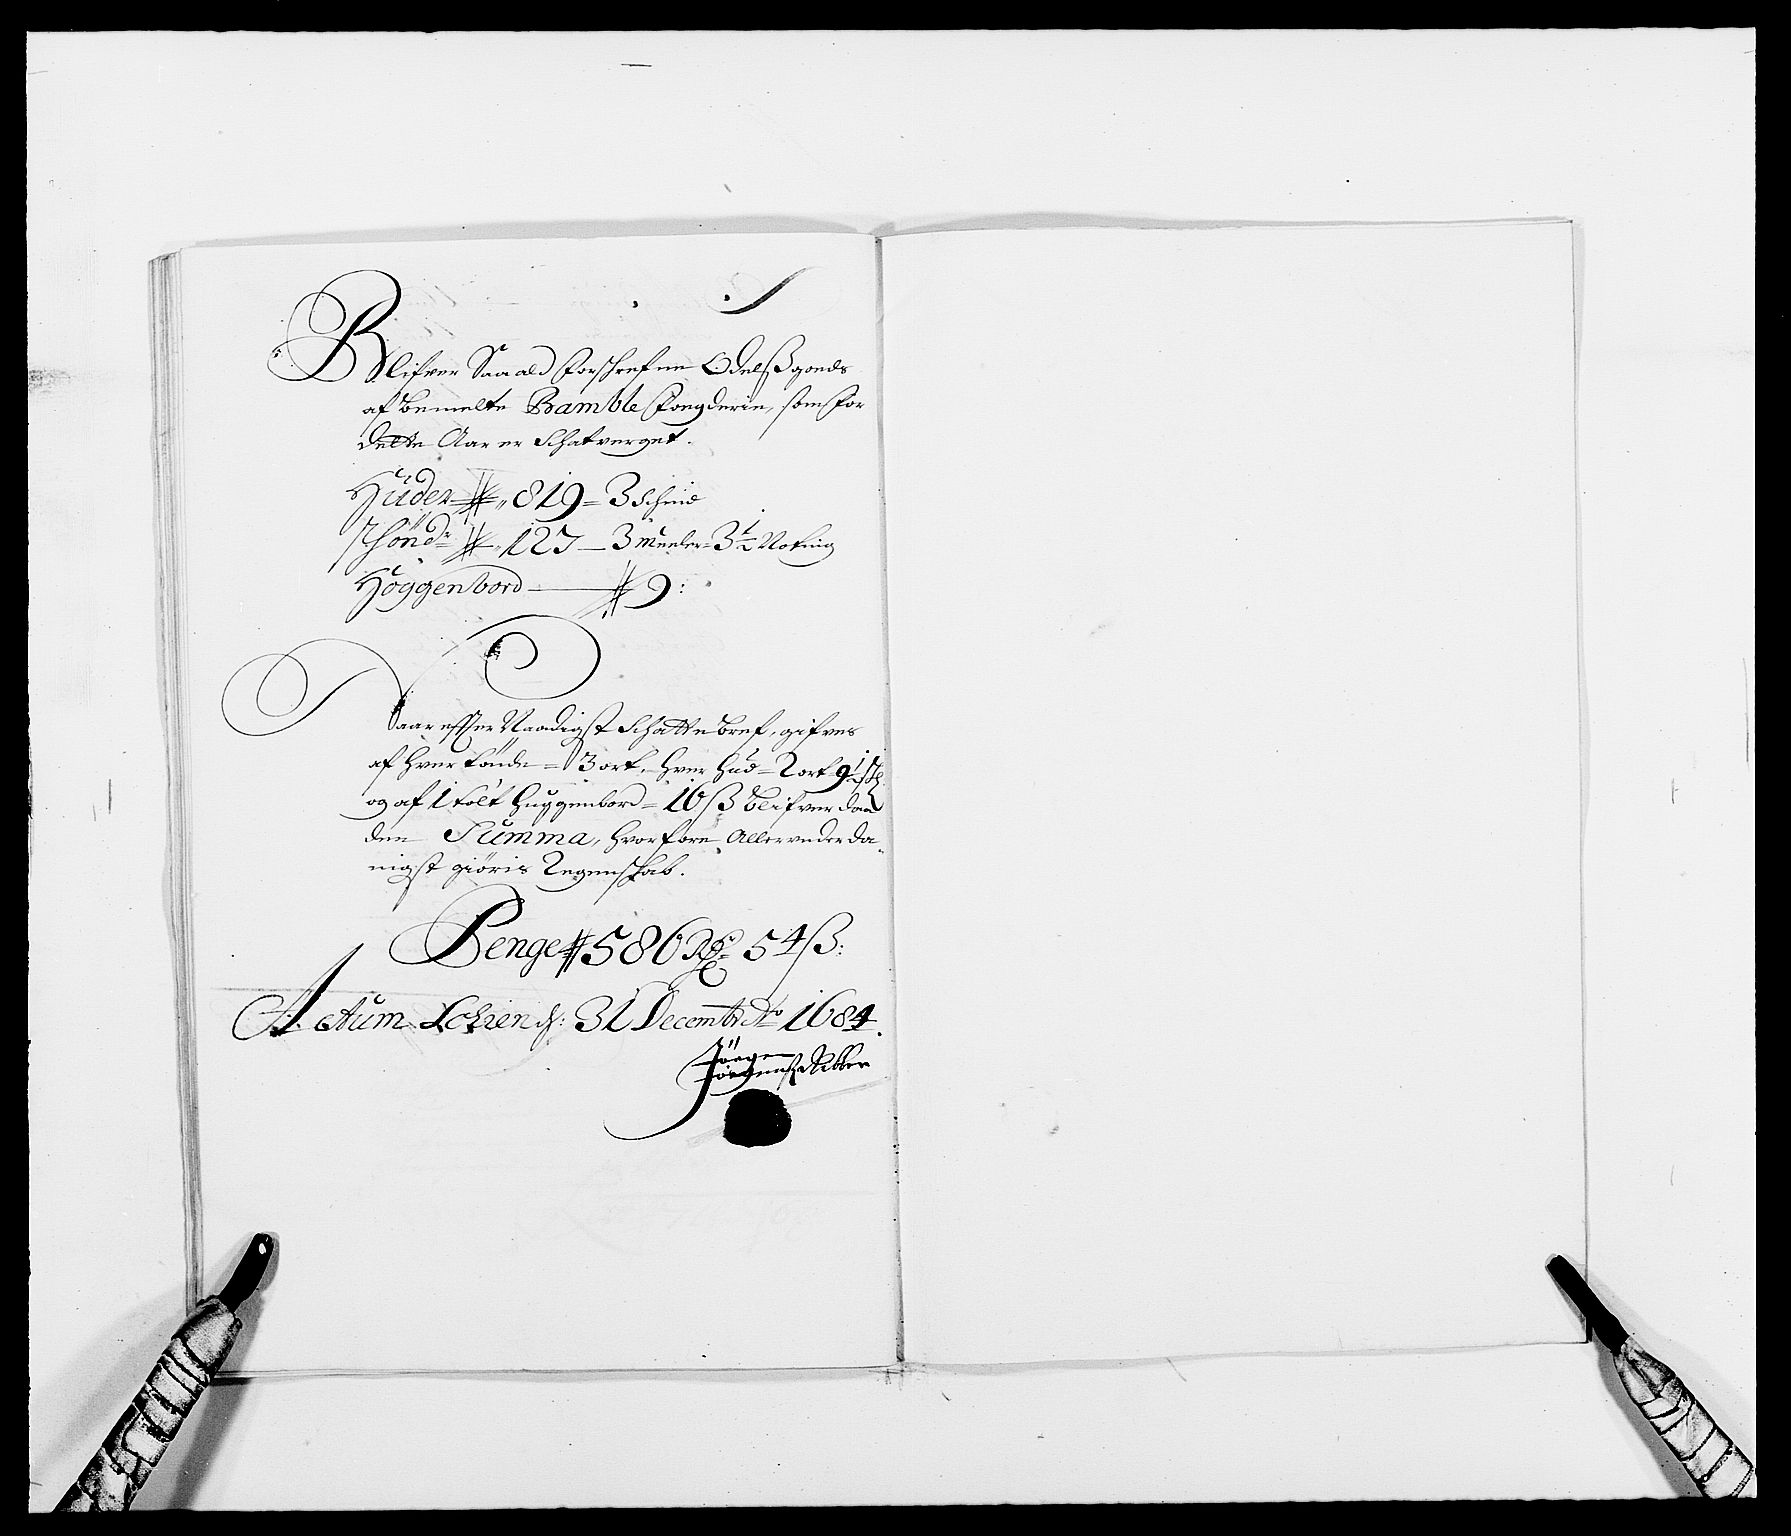 Blifver Saa ald forschrefne Odelsßgoeds
af bemelte Bamble fougderie, som for
dette Aar er Schatverget.
Huder 819 = 3 Schind
Thönd 127 — 3 Meeler = 3½ Notting
Hoggenbord — 9:
Saa er effter Naadigst Schattebref, gifves
af hver tönde = 3 ort, hver hud = 2 ort 9½ ß
og af 1 tolt huggenbord = 16 ß blifver daa
den Summa, hvorfore Allervnderda-
nigst giöris Regenschab.
Penge 586 Rdr 54 ß:
Actum d: 31 Decembr Ao 1684.
Jörgen
Jörgensen Ribber